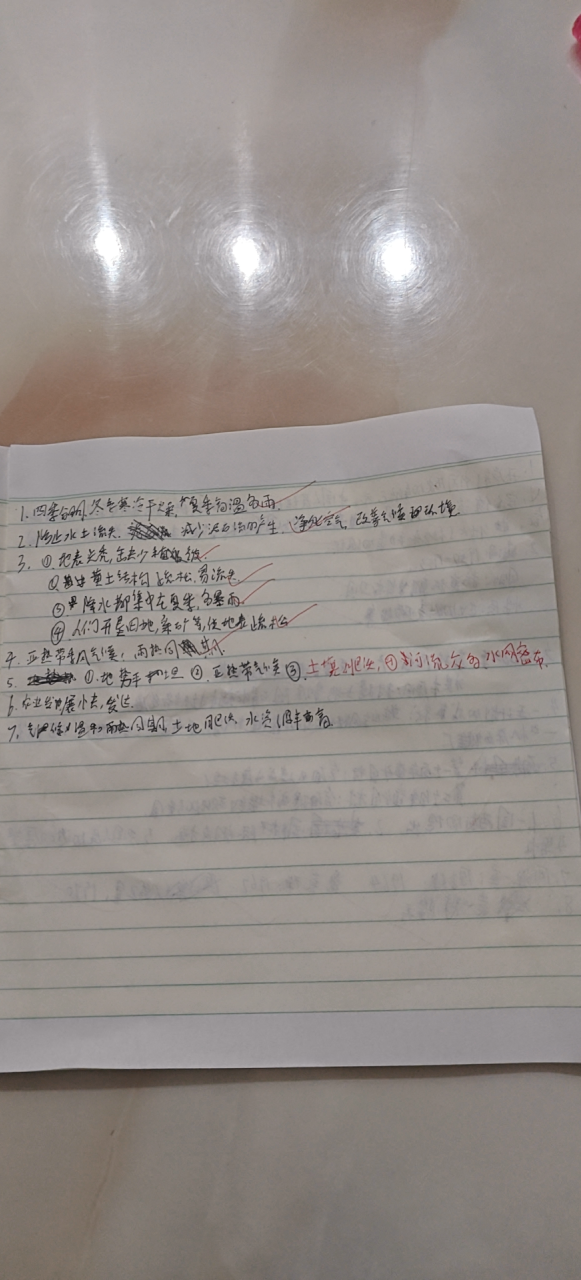 1. 四季分明，冬季寒冷干燥，夏季高温多雨
2. 防止水土流失，减少泥石流的产生，净化空气，改善生态环境
3. ①地表光秃，缺少植被
② 黄土结构疏松，易流失
③ 降水都集中在夏季，多暴雨
④ 人们开垦田地，采矿等，使地表疏松
4. 亚热带季风气候，雨热同期
5. ①地势平坦 ② 亚热带气候 ③ 土壤肥沃，④ 河流众多 水网密布
6. 农业发展
7. 气候 雨热同期，土地肥沃，水资源丰富